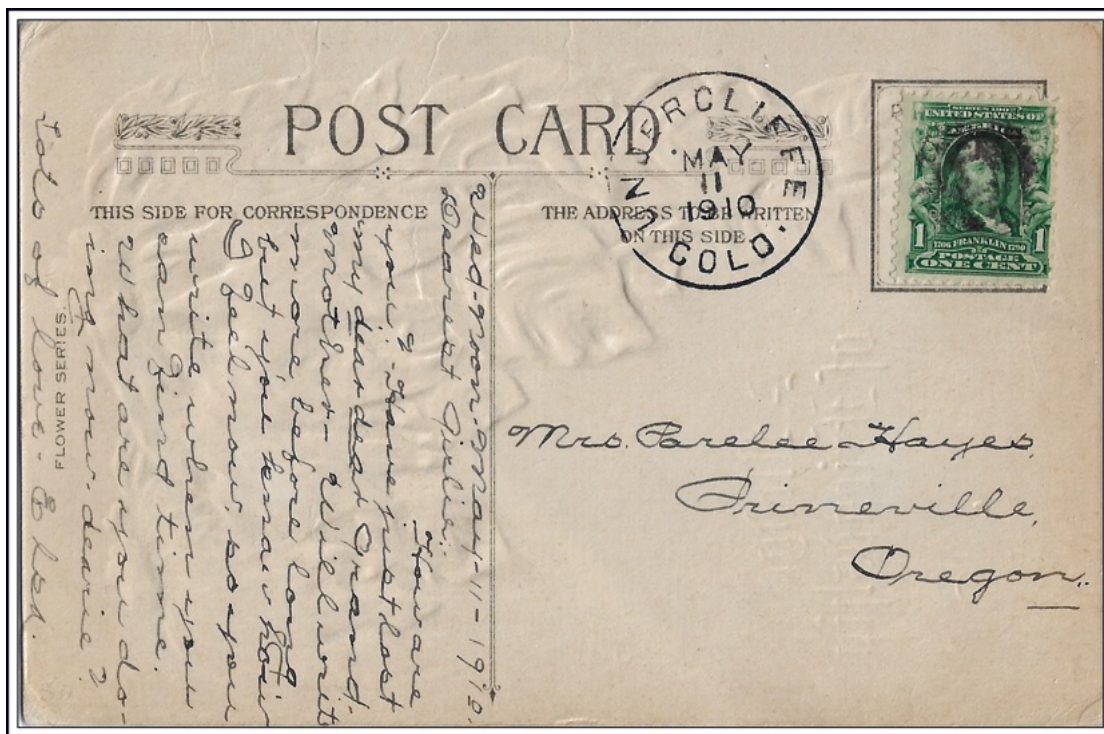 POST CARD.
THIS SIDE FOR CORRESPONDENCE
THE ADDRESS TO BE WRITTEN
ON THIS SIDE
UNDERCLIFFE
MAY
11
1910
COLO.
SERIES 1902
UNITED STATES OF
AMERICA
1706 FRANKLIN 1790
1 1
POSTAGE
ONE CENT
Wed-noon-May-11-1910.
Dearest Girlie:
How are
you? - Have just lost
my dear dear Grand-
mother- Will write
more before long
but you know how
I feel now, so you
write when you
can find time.
What are you do-
ing now, dearie?
Lots of love-
FLOWER SERIES.
Mrs. Parelee Hayes,
Prineville,
Oregon.